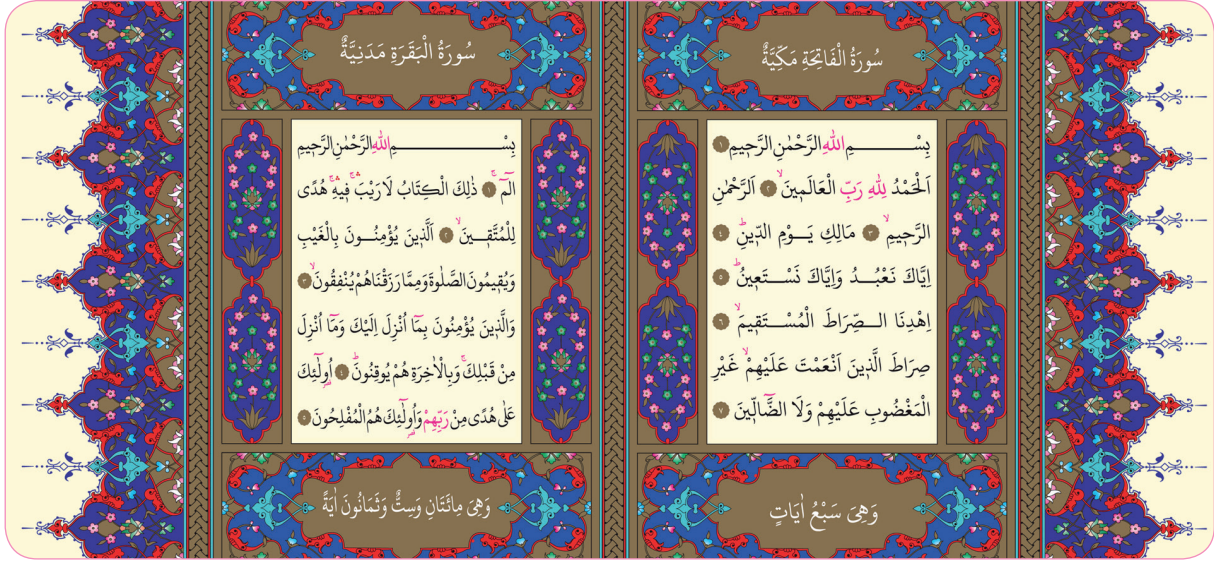 سُورَةُ الْفَاتِحَةِ مَكِّيَّةٌ
بِسْــــــــــمِ اللّٰهِ الرَّحْمٰنِ الرَّح۪يمِ ١
اَلْحَمْدُ لِلّٰهِ رَبِّ الْعَالَم۪ينَۙ ٢ اَلرَّحْمٰنِ
الرَّح۪يمِۙ ٣ مَالِكِ يَـوْمِ الدّ۪ينِۜ ٤
اِيَّاكَ نَعْبُـدُ وَاِيَّاكَ نَسْـتَع۪ينُۜ ٥
اِهْدِنَا الـصِّرَاطَ الْمُسْـتَق۪يمَۙ ٦
صِرَاطَ الَّذ۪ينَ اَنْعَمْتَ عَلَيْهِمْۙ غَيْرِ
الْمَغْضُوبِ عَلَيْهِمْ وَلَا الضَّٓالّ۪ينَ ٧
وَهِيَ سَبْعُ اٰيَاتٍ
سُورَةُ الْبَقَرَةِ مَدَنِيَّةٌ
بِسْــــــــــمِ اللّٰهِ الرَّحْمٰنِ الرَّح۪يمِ
الٓمٓۚ ١ ذٰلِكَ الْكِتَابُ لَا رَيْبَۚۛ ف۪يهِۚۛ هُدًى
لِلْمُتَّق۪ـينَۙ ٢ اَلَّذ۪ينَ يُؤْمِنُـونَ بِالْغَيْبِ
وَيُق۪يمُونَ الصَّلٰوةَ وَمِمَّا رَزَقْنَاهُمْ يُنْفِقُونَۙ ٣
وَالَّذ۪ينَ يُؤْمِنُونَ بِمَٓا اُنْزِلَ اِلَيْكَ وَمَٓا اُنْزِلَ
مِنْ قَبْلِكَۚ وَبِالْاٰخِرَةِ هُمْ يُوقِنُونَۜ ٤ اُو۬لٰٓئِكَ
عَلٰى هُدًى مِنْ رَبِّهِمْ وَاُو۬لٰٓئِكَ هُمُ الْمُفْلِحُونَ ٥
وَهِيَ مِائَتَانِ وَسِتٌّ وَثَمَانُونَ اٰيَةً